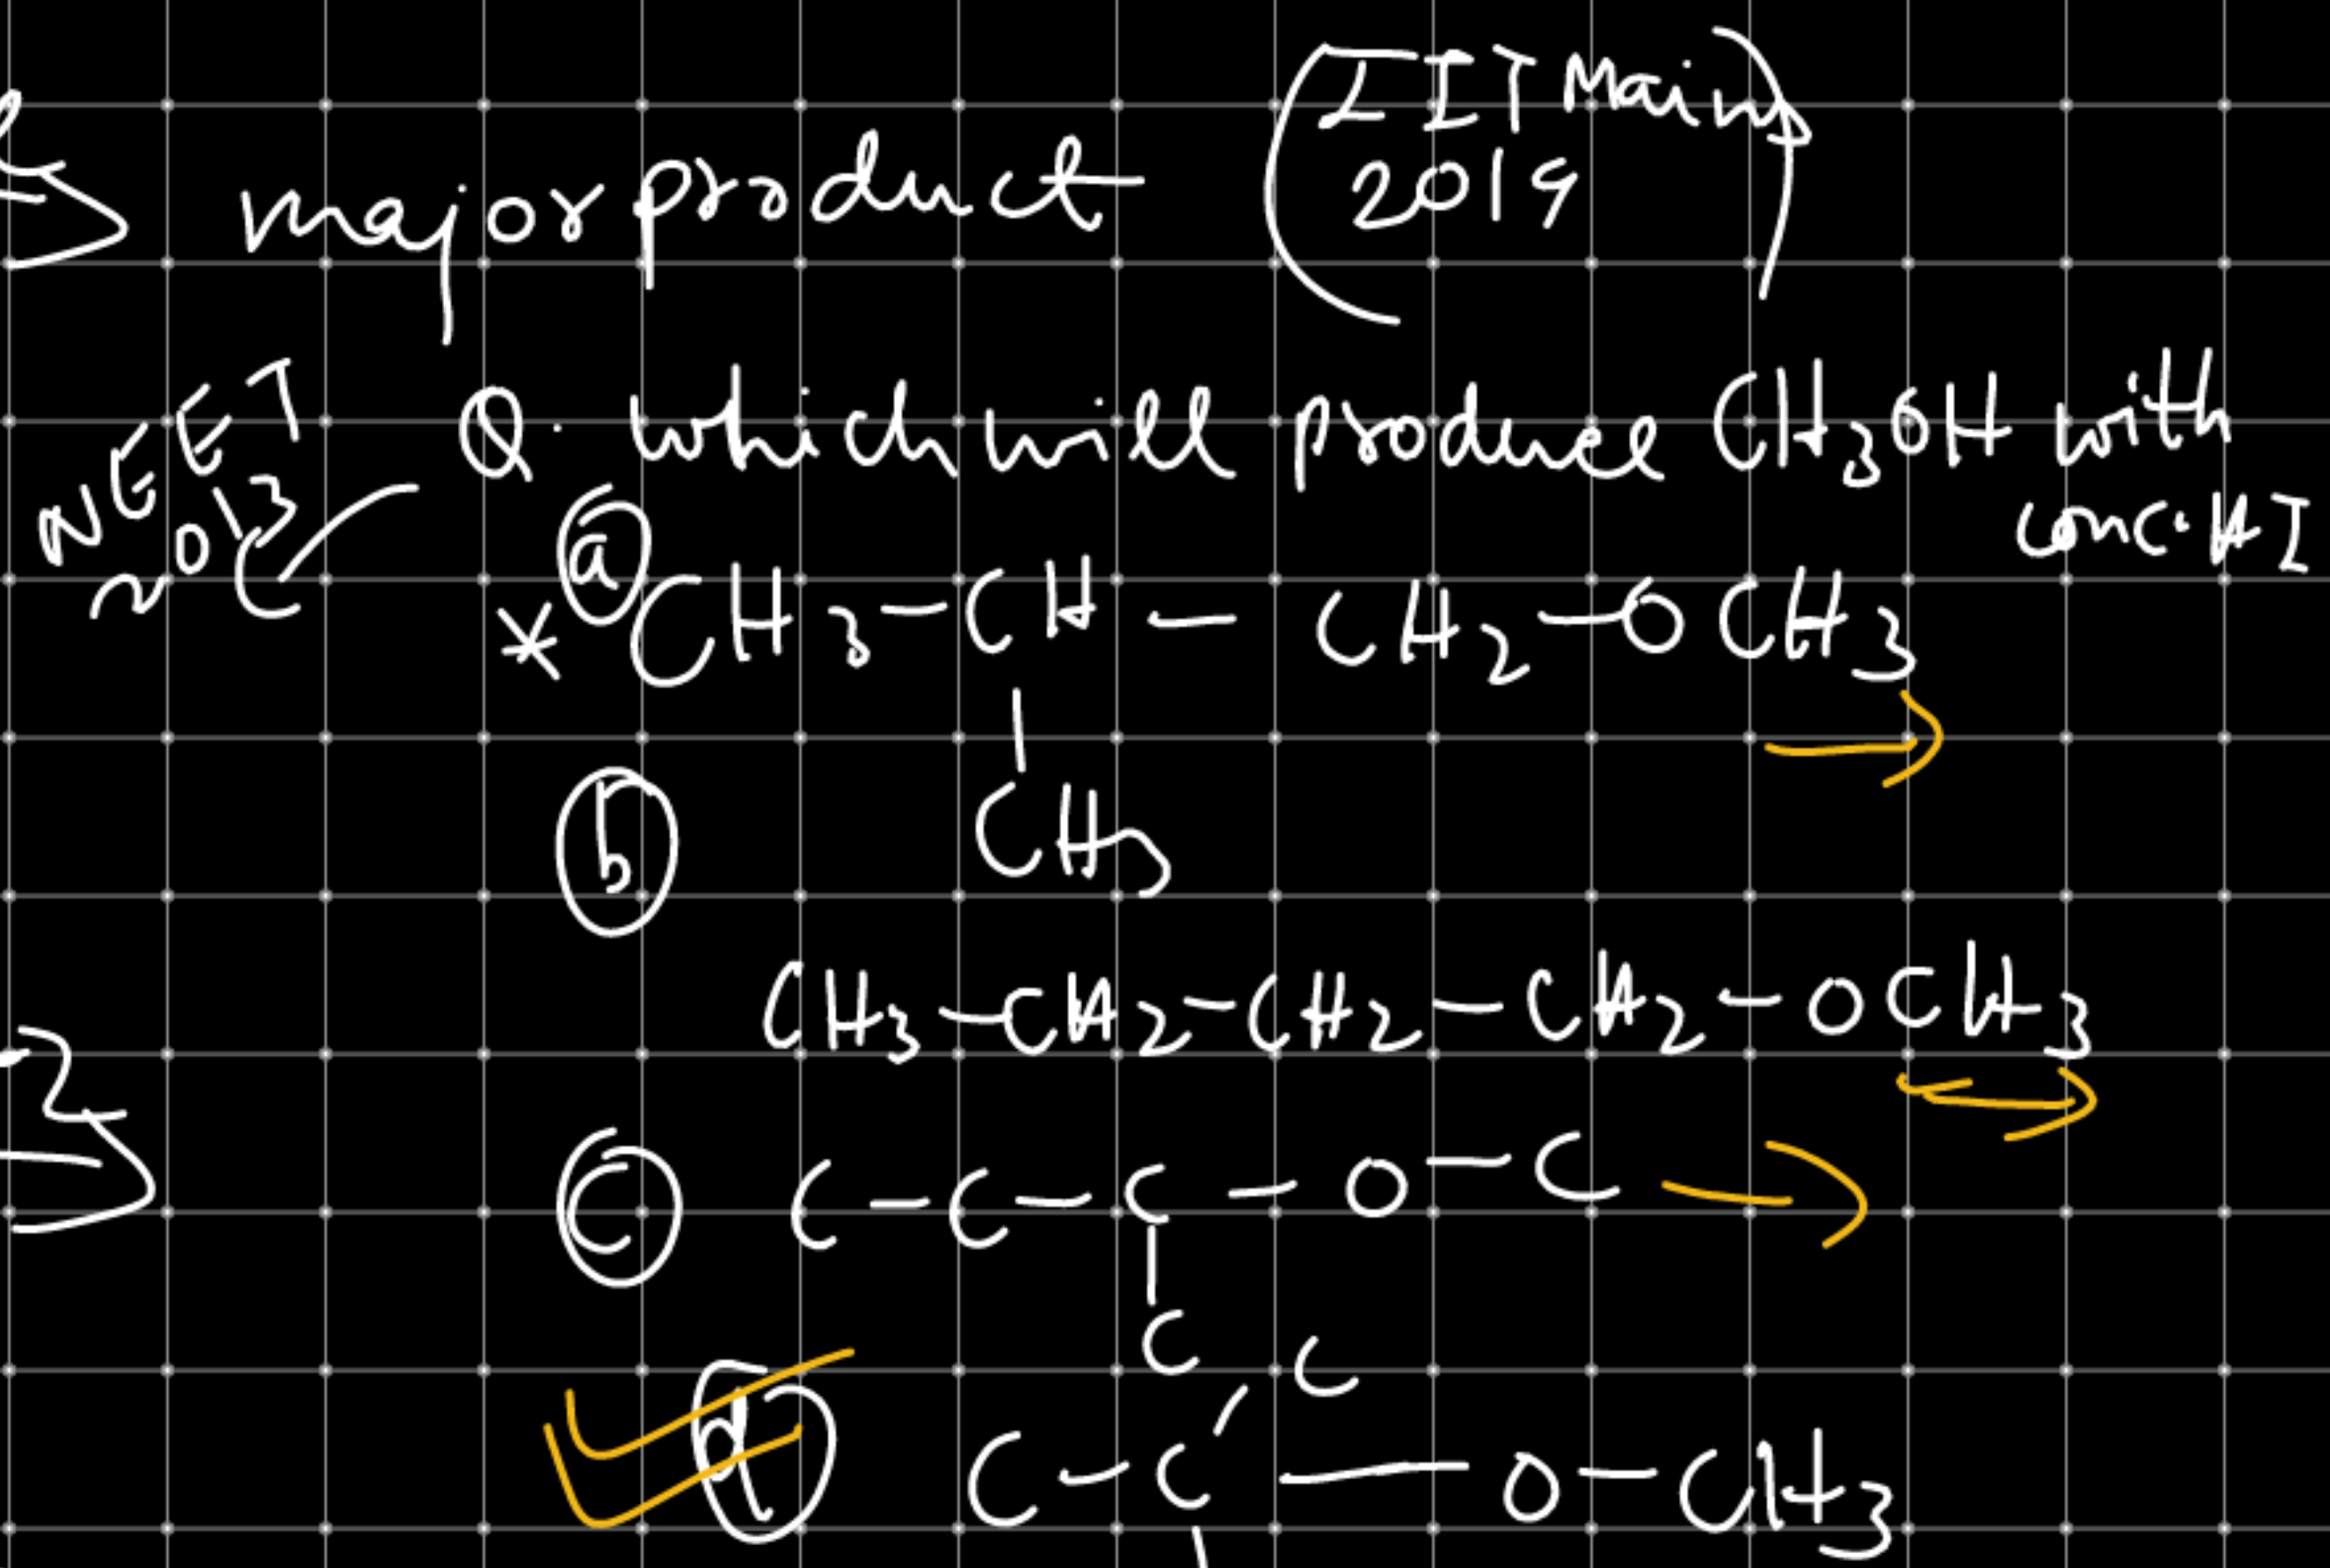 major product (IIT Mains
2019)
NEET
2013
Q. which will produce CH3OH with
conc. HI
(a)
* CH3-CH-CH2-OCH3
|
CH3
(b)
CH3-CH2-CH2-CH2-OCH3
(c) C-C-C-O-C
|
C
C
(d) C-C-O-CH3